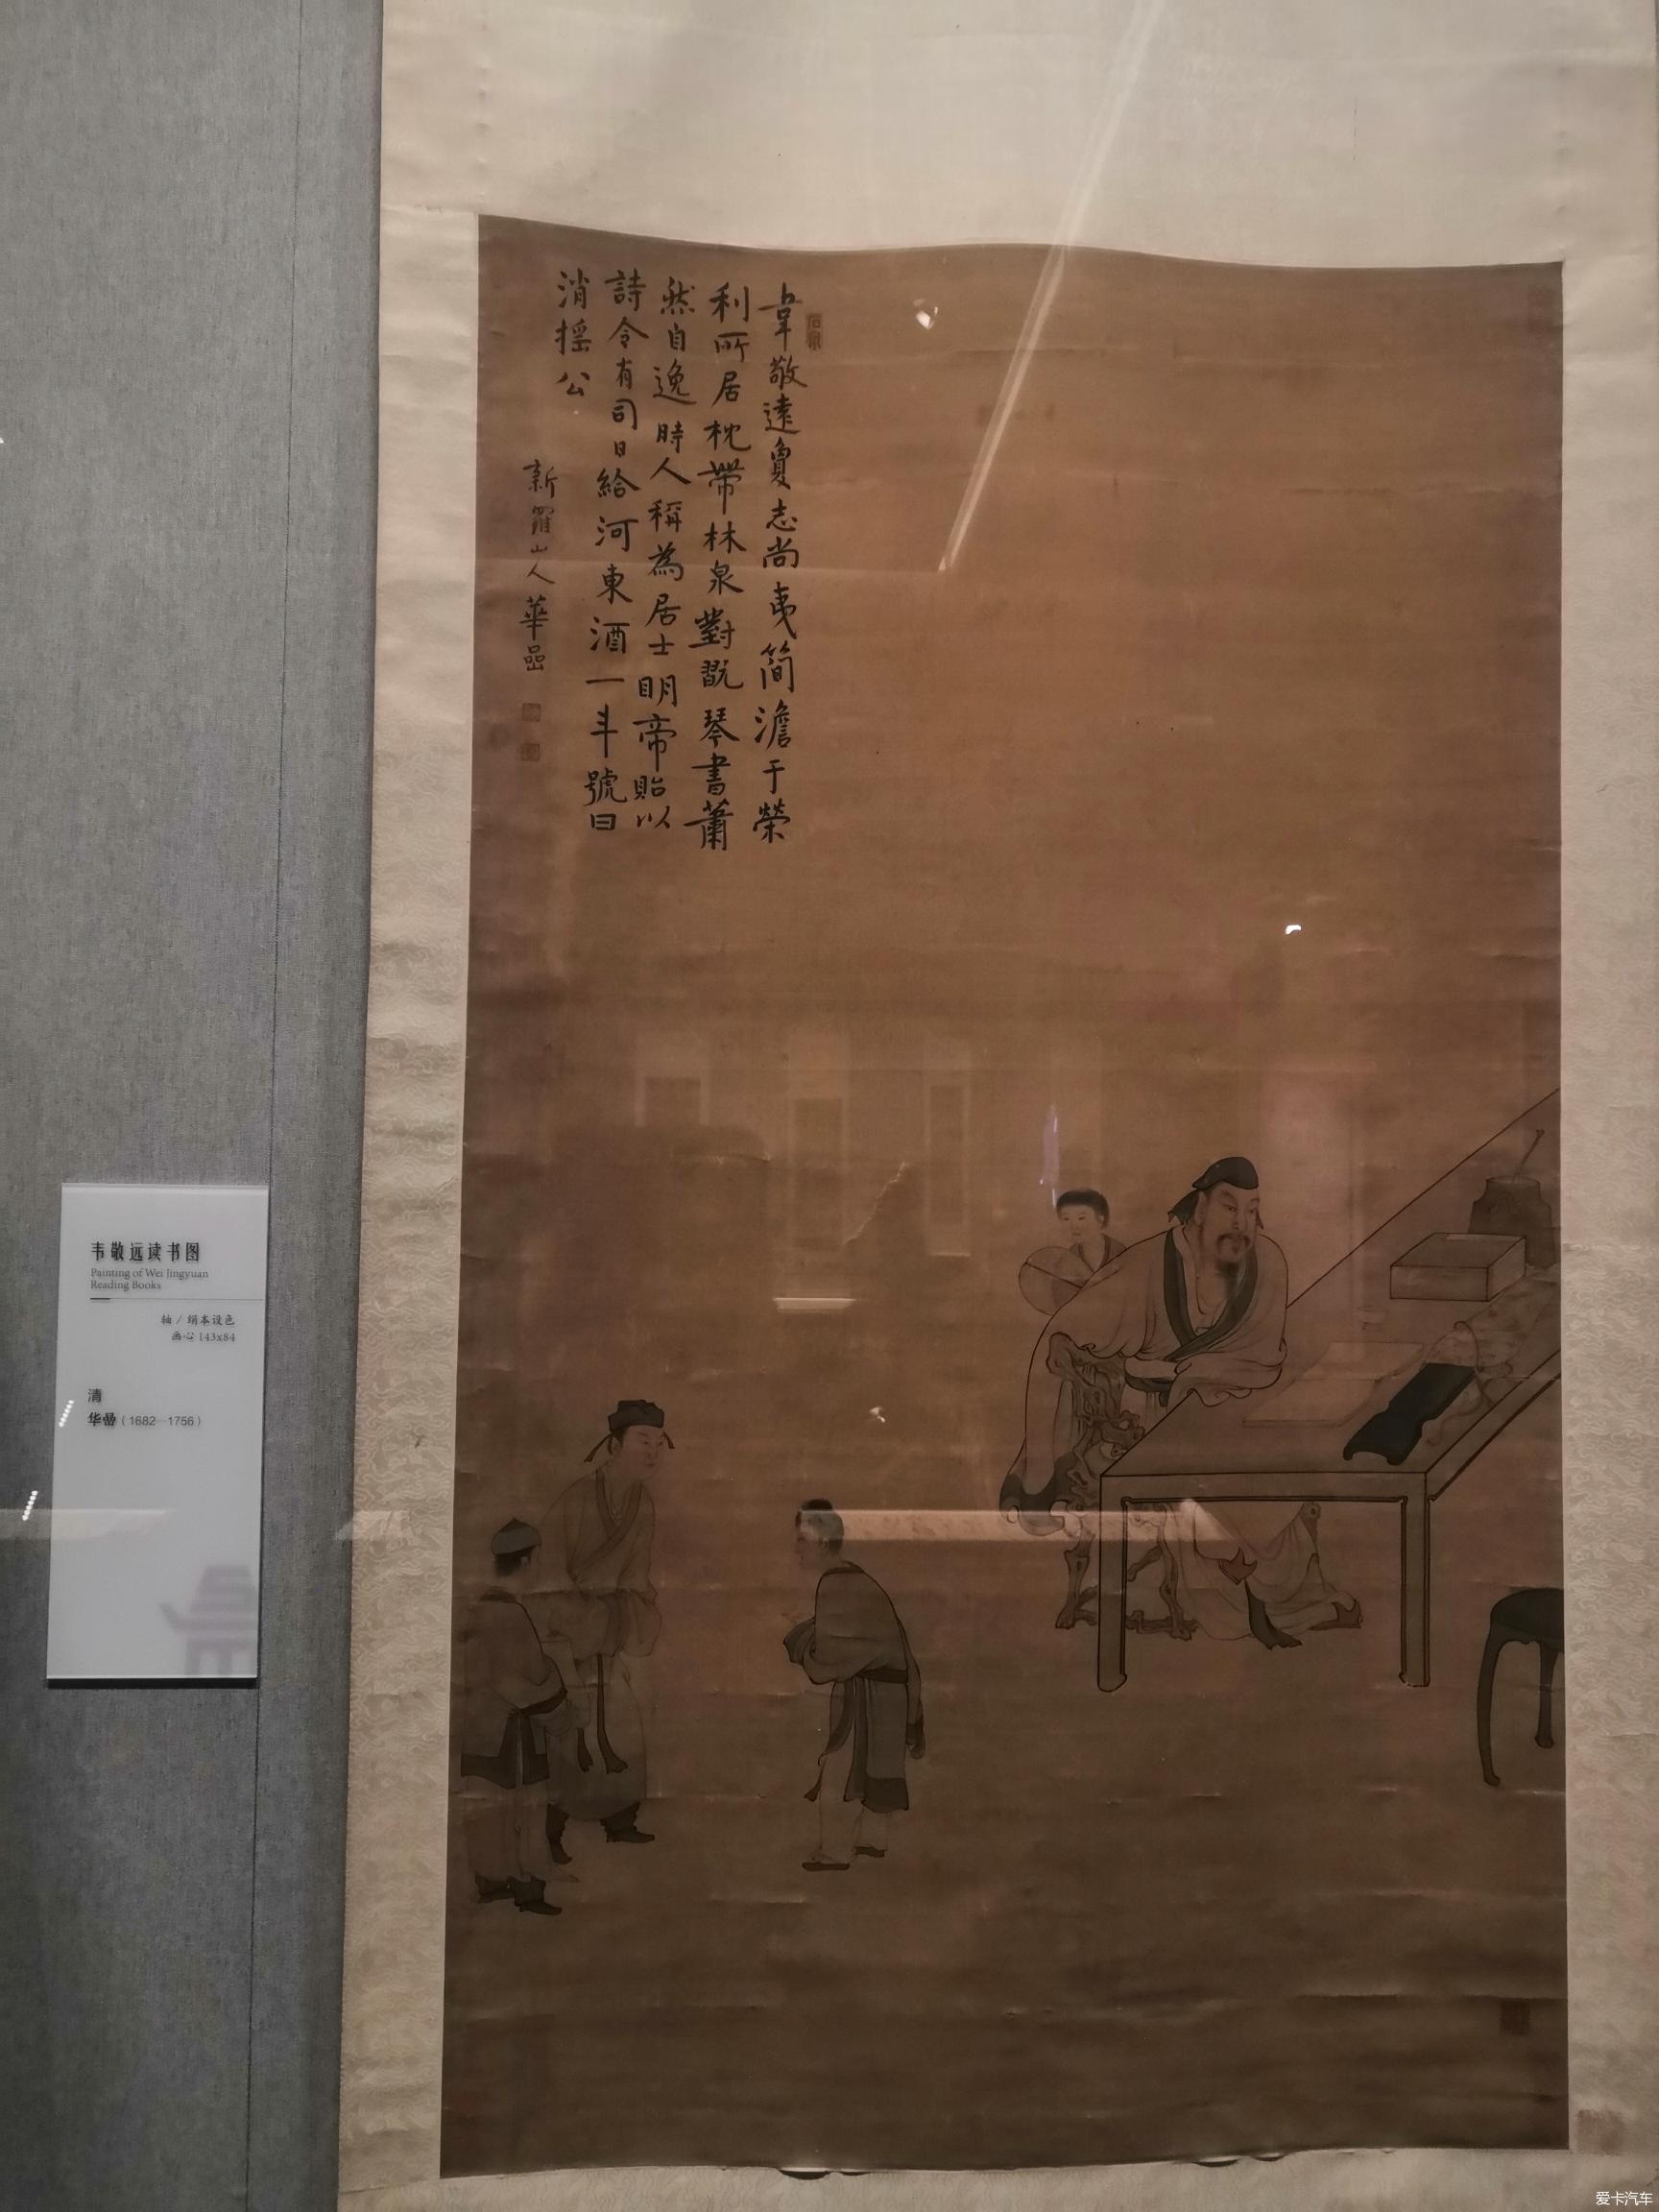 韋敬遠敻志尚夷簡澹于榮
利所居枕帶林泉對翫琴書蕭
然自逸時人稱為居士明帝貽以
詩令有司日給河東酒一斗號曰
逍搖公
新羅山人華喦
韦敬远读书图
Painting of Wei Jingyuan
Reading Books
轴 / 绢本设色
画心 143x84
清
华喦（1682—1756）
爱卡汽车